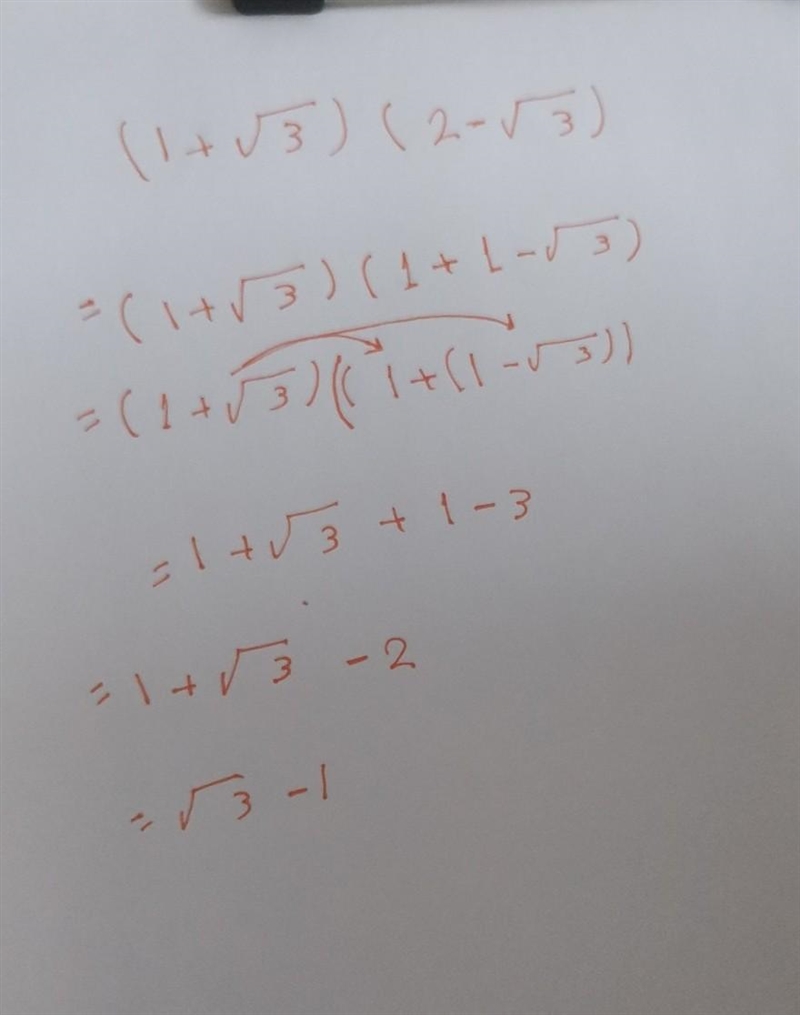 (1+√3)(2-√3)
=(1+√3)(1+1-√3)
=(1+√3)((1+(1-√3))
=1+√3+1-3
=1+√3-2
=√3-1